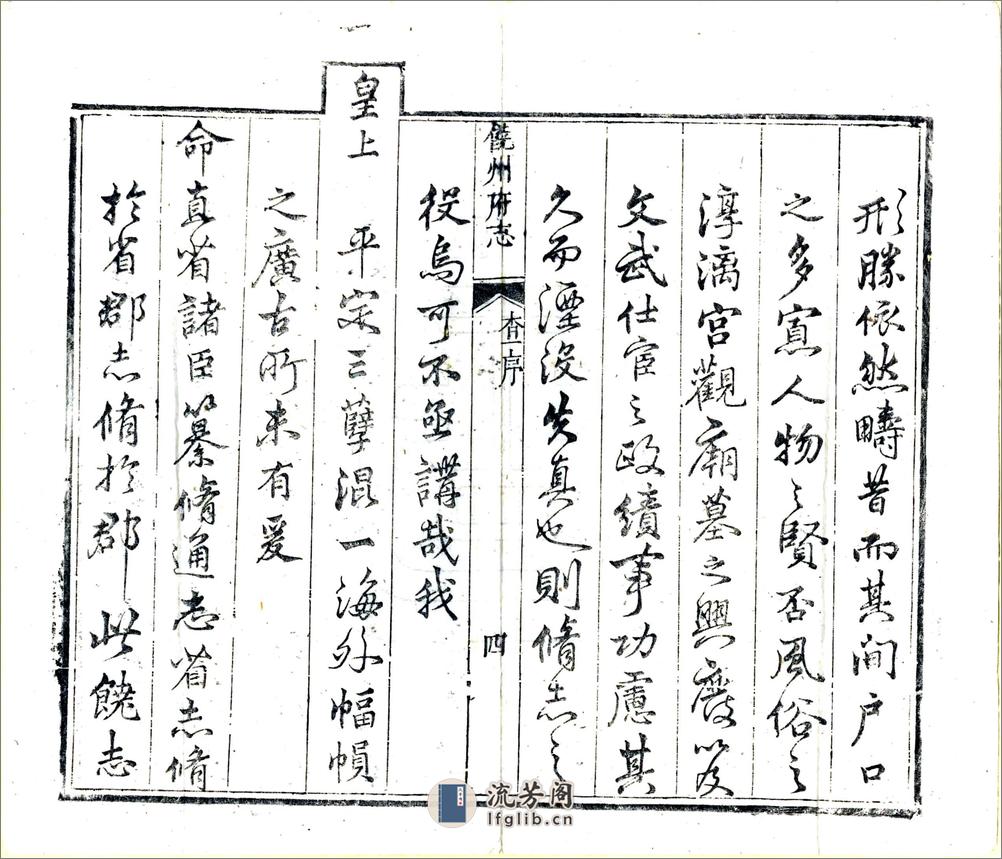 形勝依然疇昔而其间户口
之多寡人物之賢否風俗之
淳漓宫觀廟墓之興廢以及
文武仕宦之政績事功慮其
久而湮没失真也則脩志之
饒州府志
序
四
役烏可不亟講哉我
皇上平定三孽混一海外幅幀
之廣古所未有爰
命直省諸臣纂脩通志省志脩
於省郡志脩於郡此饒志
流芳阁
lfglib.cn